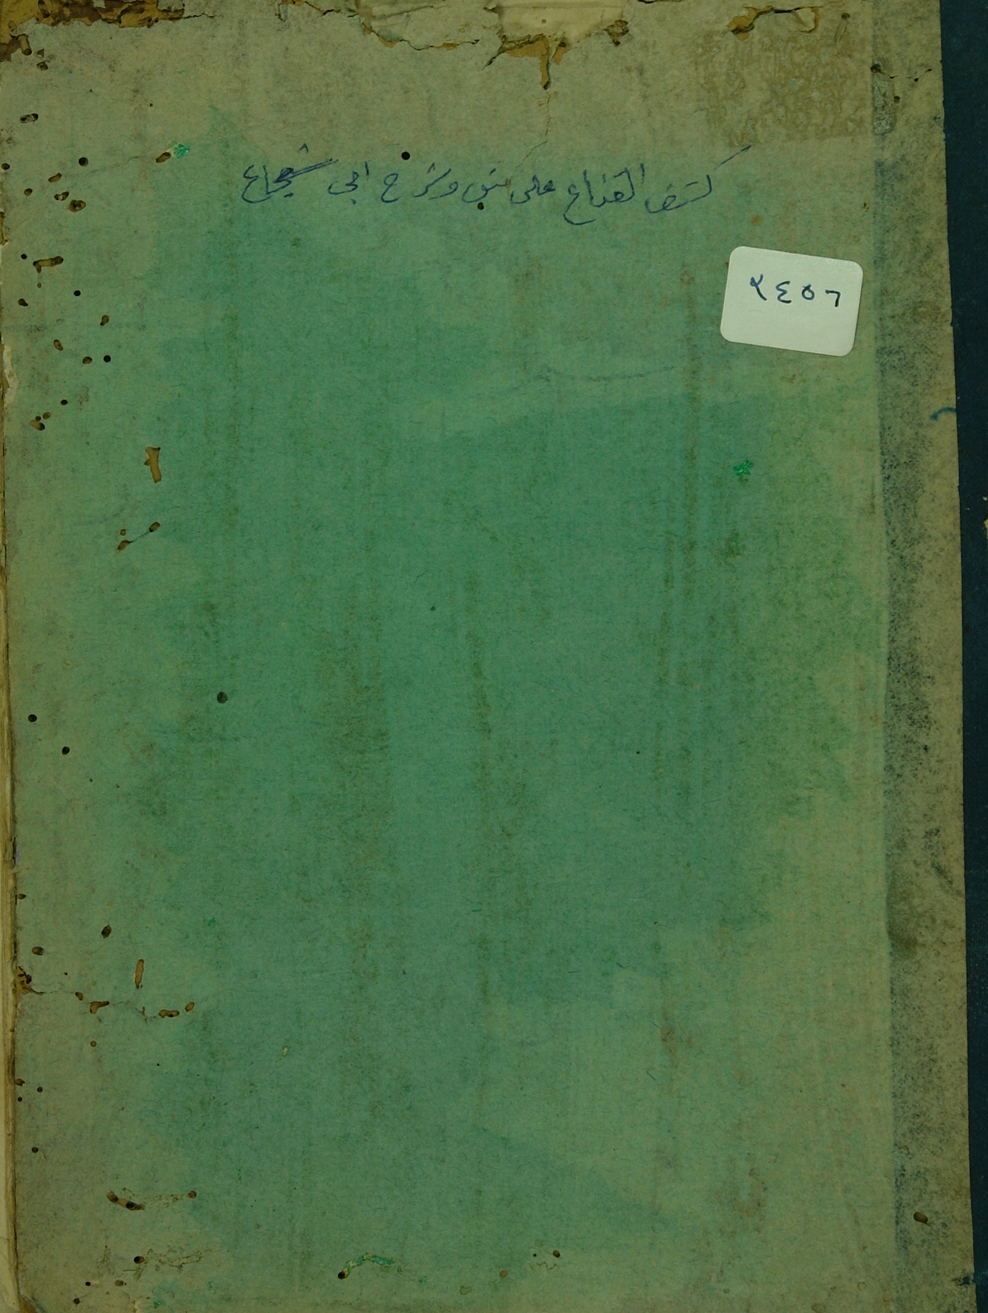 كشف القناع على متن وشرح ابي شجاع
٢٤٥٦